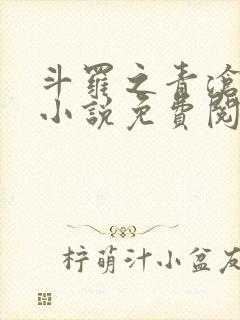 斗羅之青滄
小說免費閱
柠萌汁小盆友